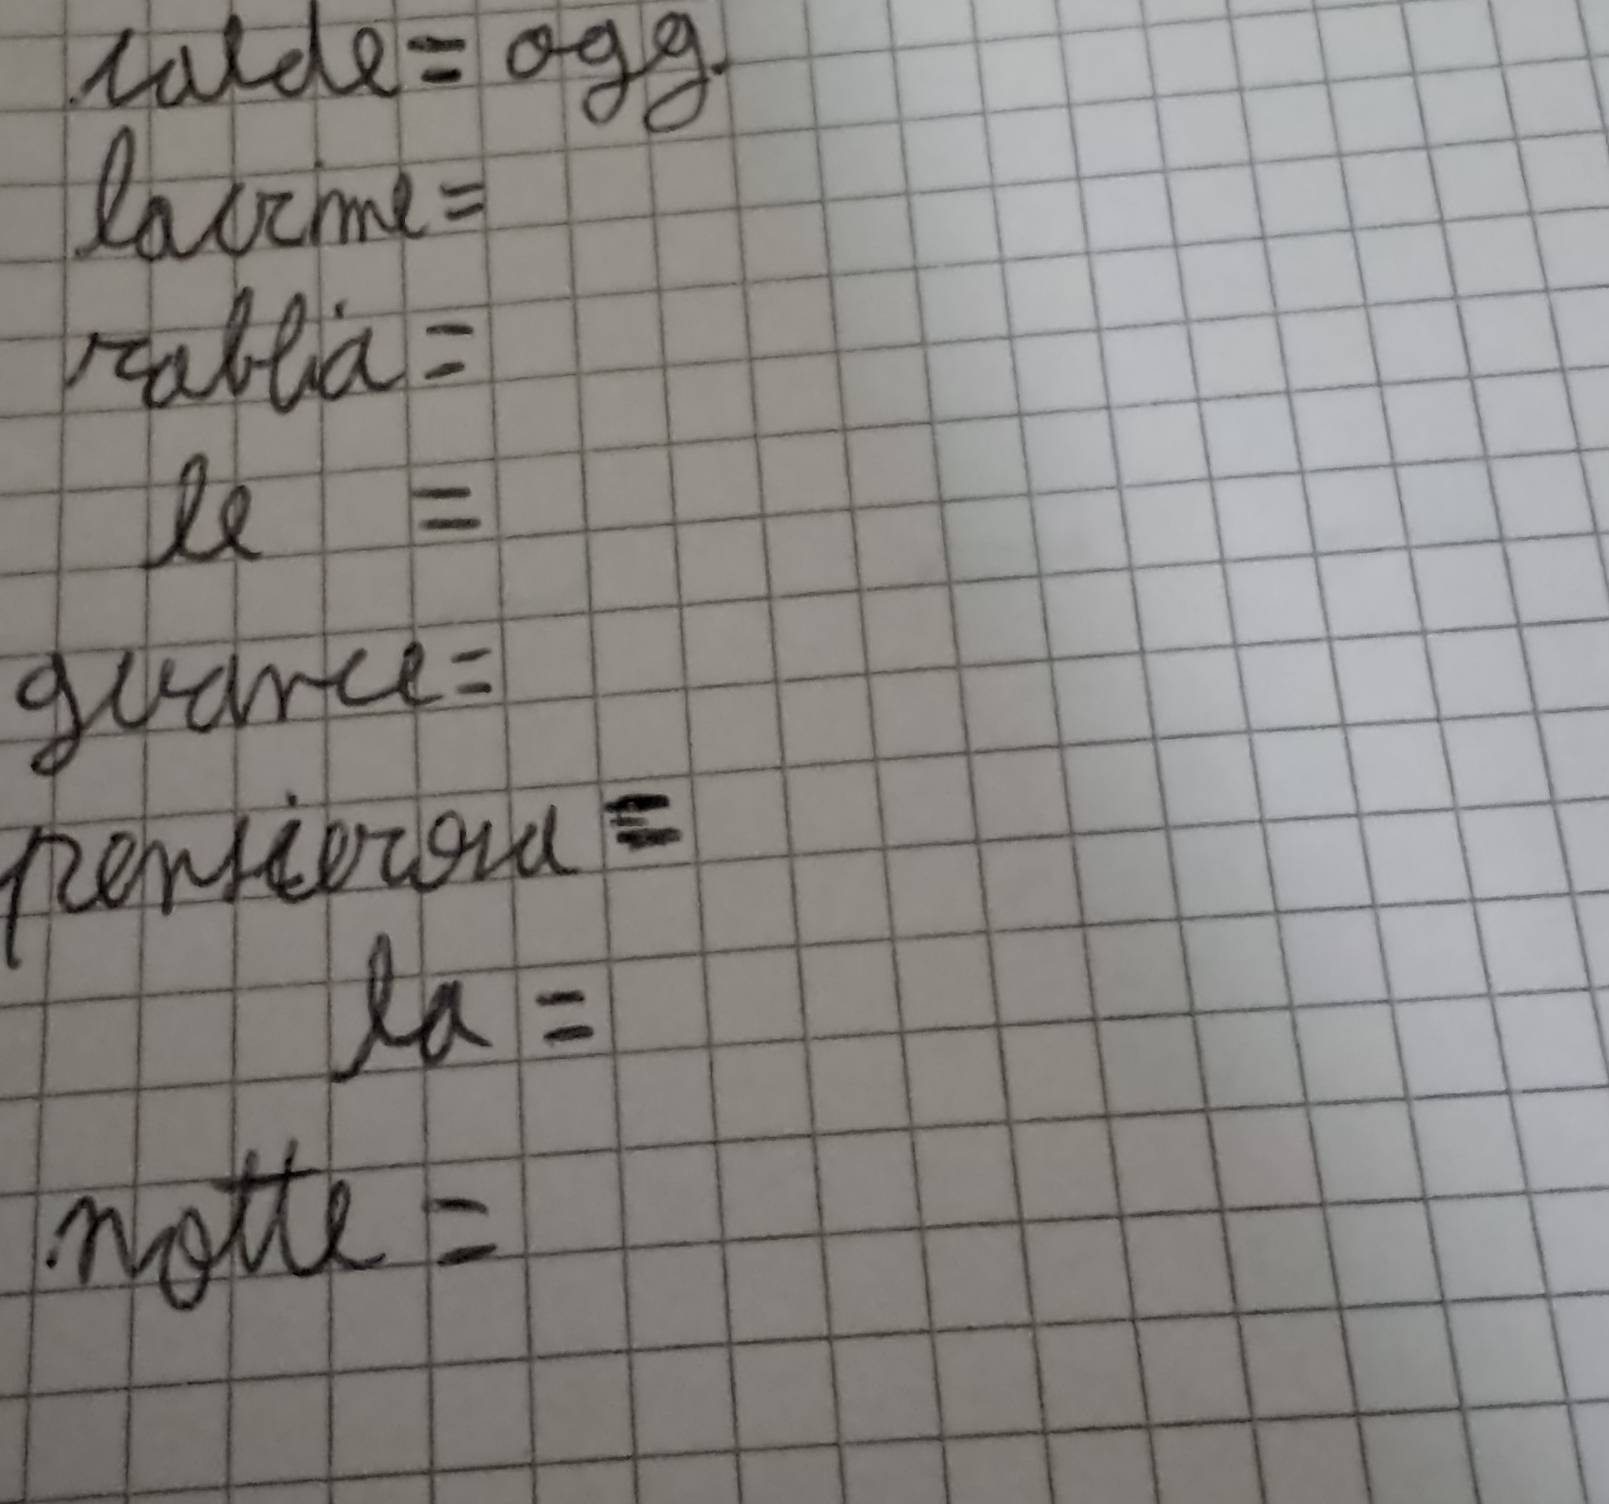 calde = ogg.
lacrime =
rabbia =
le =
guance =
pensierosa =
la =
notte =